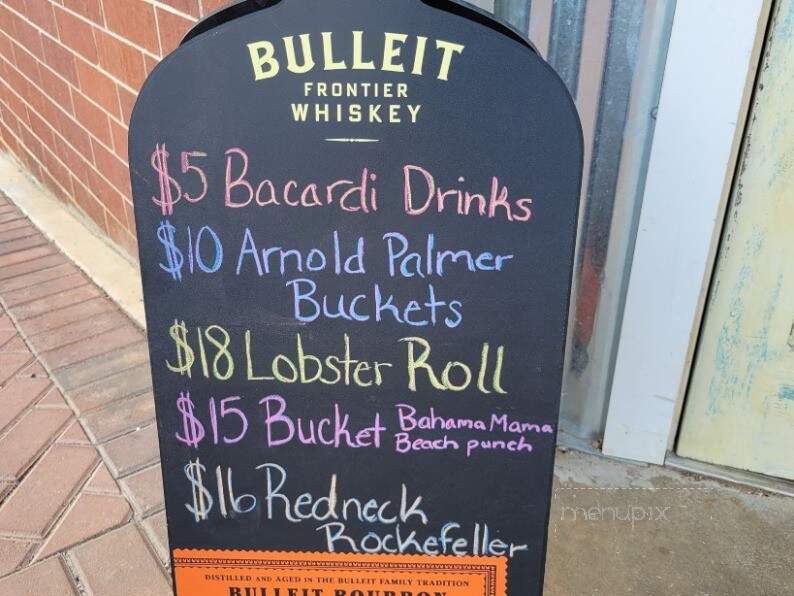 BULLEIT
FRONTIER
WHISKEY
$5 Bacardi Drinks
$10 Arnold Palmer
Buckets
$18 Lobster Roll
$15 Bucket Bahama Mama
Beach punch
$16 Redneck
Rockefeller
DISTILLED AND AGED IN THE BULLEIT FAMILY TRADITION
BULLEIT BOURBON
menupix